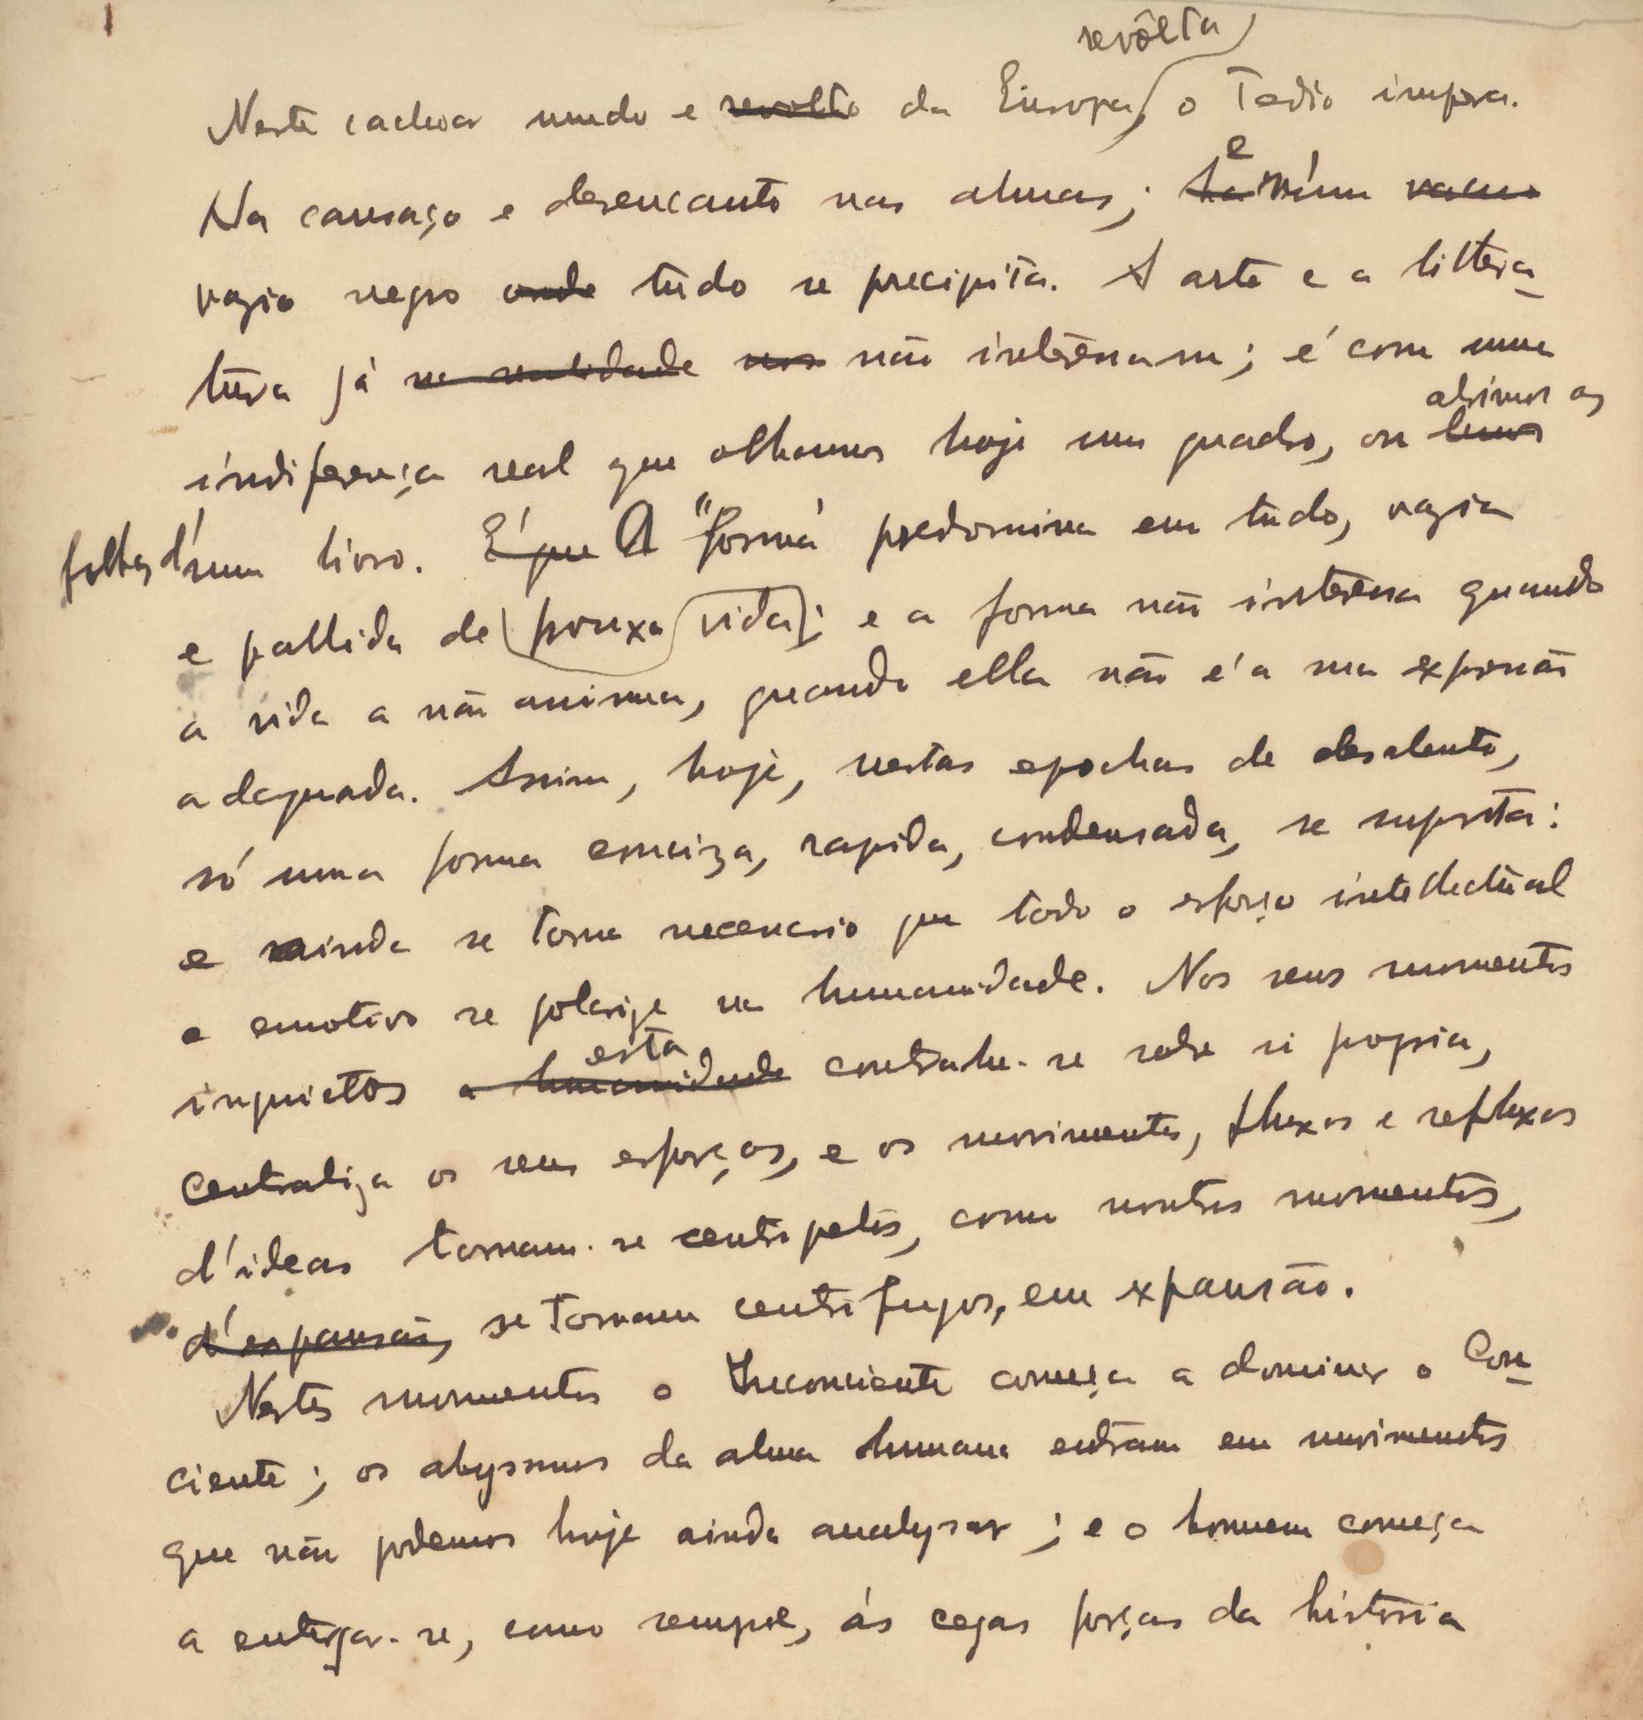 1
revôlta
Neste cachoar mudo e revolto da Europa, o Tedio impera.
Ha cansaço e desencanto nas almas; ha e n'um vacuo
vazio negro onde tudo se precipita. A arte e a littera-
tura já na realidade nos não interessam; é com uma
abrimos as
indiferença real que olhamos hoje um quadro, ou lemos
folhas d'um livro. É que A "forma" predomina em tudo, vazia
e pallida de pouxa vida; e a forma não interessa quando
a vida a não anima, quando ella não é a sua expressão
adequada. Assim, hoje, nestas epochas de desalento,
só uma forma conciza, rapida, condensada, se suporta:
e ainda se torna necessario que todo o esforço intellectual
e emotivo se polarize na humanidade. Nos seus momentos
esta
inquietos a humanidade contrahe-se sobre si propria,
centraliza os seus esforços, e os movimentos, fluxos e refluxos
d'ideas tornam-se centripetos, como noutros momentos,
d'expansão, se tornam centrifugos, em expansão.
Nestes momentos o Inconsciente começa a dominar o Con-
ciente; os abysmos da alma humana entram em movimentos
que não podemos hoje ainda analysar; e o homem começa
a entregar-se, como sempre, ás cegas forças da historia